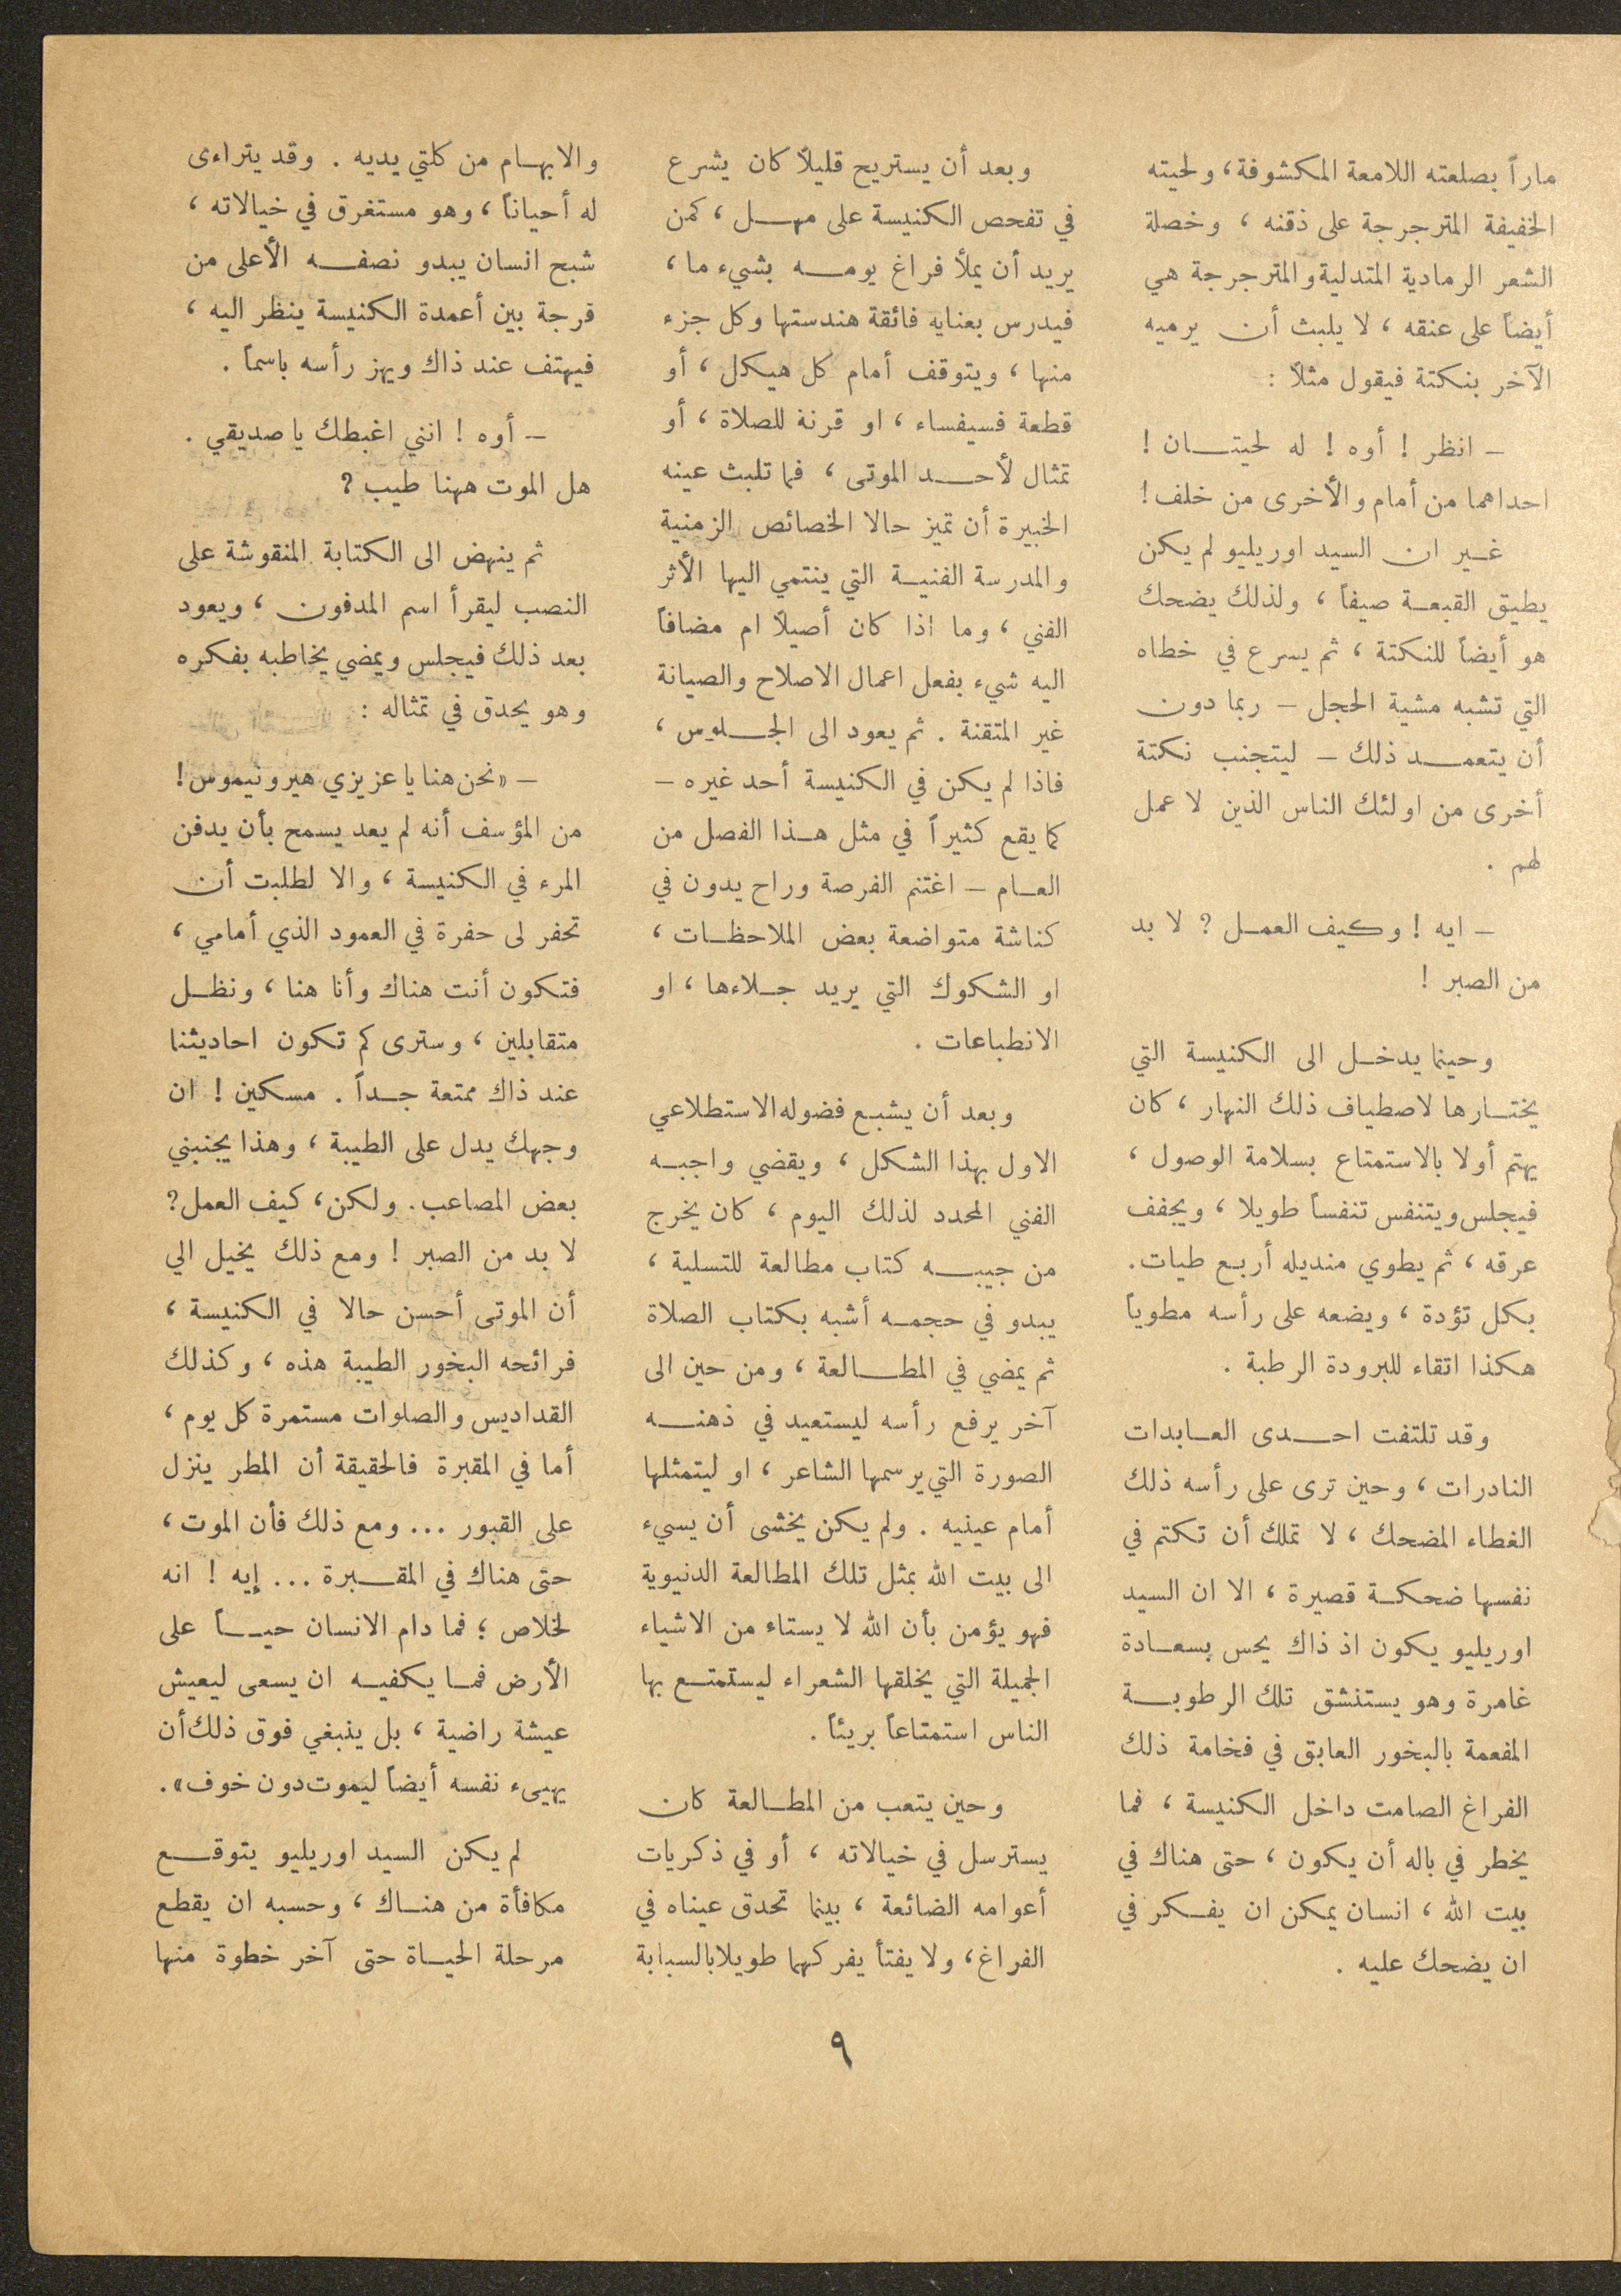 ماراً بصلعته اللامعة المكشوفة، ولحيته
الخفيفة المترجرجة على ذقنه ، وخصلة
الشعر الرمادية المتدلية والمترجرجة هي
أيضاً على عنقه ، لا يلبث أن يرميه
الآخر بنكتة فيقول مثلاً :
– انظر ! أوه ! له لحيتان !
احداهما من أمام والأخرى من خلف !
غير ان السيد اوريليو لم يكن
يطيق القبعة صيفاً ، ولذلك يضحك
هو أيضاً للنكتة ، ثم يسرع في خطاه
التي تشبه مشية الحجل – ربما دون
أن يتعمد ذلك – ليتجنب نكتة
أخرى من اولئك الناس الذين لا عمل
لهم .
– ايه ! وكيف العمل ? لا بد
من الصبر !
وحينما يدخل الى الكنيسة التي
يختارها لاصطياف ذلك النهار ، كان
يهتم أولا بالاستمتاع بسلامة الوصول ،
فيجلس ويتنفس تنفساً طويلا ، ويجفف
عرقه ، ثم يطوي منديله أربع طيات.
بكل تؤدة ، ويضعه على رأسه مطوياً
هكذا اتقاء للبرودة الرطبة .
وقد تلتفت احدى العابدات
النادرات ، وحين ترى على رأسه ذلك
الغطاء المضحك ، لا تملك أن تكتم في
نفسها ضحكة قصيرة ، الا ان السيد
اوريليو يكون اذ ذاك يحس بسعادة
غامرة وهو يستنشق تلك الرطوبة
المفعمة بالبخور العابق في فخامة ذلك
الفراغ الصامت داخل الكنيسة ، فما
يخطر في باله أن يكون ، حتى هناك في
بيت الله ، انسان يمكن ان يفكر في
ان يضحك عليه .
وبعد أن يستريح قليلاً كان يشرع
في تفحص الكنيسة على مهل ، كمن
يريد أن يملأ فراغ يومه بشيء ما ،
فيدرس بعنايه فائقة هندستها وكل جزء
منها ، ويتوقف أمام كل هيكل ، أو
قطعة فسيفساء ، او قرنة للصلاة ، أو
تمثال لأحد الموتى ، فما تلبث عينه
الخبيرة أن تميز حالا الخصائص الزمنية
والمدرسة الفنية التي ينتمي اليها الأثر
الفني ، وما اذا كان أصيلاً ام مضافاً
اليه شيء بفعل اعمال الاصلاح والصيانة
غير المتقنة . ثم يعود الى الجلوس ،
فاذا لم يكن في الكنيسة أحد غيره –
كما يقع كثيراً في مثل هذا الفصل من
العام – اغتنم الفرصة وراح يدون في
كناشة متواضعة بعض الملاحظات ،
او الشكوك التي يريد جلاءها ، او
الانطباعات .
وبعد أن يشبع فضوله الاستطلاعي
الاول بهذا الشكل ، ويقضي واجبه
الفني المحدد لذلك اليوم ، كان يخرج
من جيبه كتاب مطالعة للتسلية ،
يبدو في حجمه أشبه بكتاب الصلاة
ثم يمضي في المطالعة ، ومن حين الى
آخر يرفع رأسه ليستعيد في ذهنه
الصورة التي يرسمها الشاعر ، او ليتمثلها
أمام عينيه . ولم يكن يخشى أن يسيء
الى بيت الله بمثل تلك المطالعة الدنيوية
فهو يؤمن بأن الله لا يستاء من الاشياء
الجميلة التي يخلقها الشعراء ليستمتع بها
الناس استمتاعاً بريئاً .
وحين يتعب من المطالعة كان
يسترسل في خيالاته ، أو في ذكريات
أعوامه الضائعة ، بينما تحدق عيناه في
الفراغ، ولا يفتأ يفركهما طويلا بالسبابة
والابهام من كلتي يديه . وقد يتراءى
له أحياناً ، وهو مستغرق في خيالاته ،
شبح انسان يبدو نصفه الأعلى من
فرجة بين أعمدة الكنيسة ينظر اليه ،
فيهتف عند ذاك ويهز رأسه باسماً .
– أوه ! انني اغبطك يا صديقي .
هل الموت ههنا طيب ?
ثم ينهض الى الكتابة المنقوشة على
النصب ليقرأ اسم المدفون ، ويعود
بعد ذلك فيجلس ويمضي يخاطبه بفكره
وهو يحدق في تمثاله :
– «نحن هنا يا عزيزي هيرونيموس !
من المؤسف أنه لم يعد يسمح بأن يدفن
المرء في الكنيسة ، والا لطلبت أن
تحفر لى حفرة في العمود الذي أمامي ،
فتكون أنت هناك وأنا هنا ، ونظل
متقابلين ، وسترى كم تكون احاديثنا
عند ذاك ممتعة جداً . مسكين ! ان
وجهك يدل على الطيبة ، وهذا يجنبني
بعض المصاعب. ولكن، كيف العمل?
لا بد من الصبر ! ومع ذلك يخيل الي
أن الموتى أحسن حالا في الكنيسة ،
فرائحه البخور الطيبة هذه ، وكذلك
القداديس والصلوات مستمرة كل يوم ،
أما في المقبرة فالحقيقة أن المطر ينزل
على القبور ... ومع ذلك فأن الموت ،
حتى هناك في المقبرة ... إيه ! انه
لخلاص ؛ فما دام الانسان حياً على
الأرض فما يكفيه ان يسعى ليعيش
عيشة راضية ، بل ينبغي فوق ذلك أن
يهيىء نفسه أيضاً ليموت دون خوف».
لم يكن السيد اوريليو يتوقع
مكافأة من هناك ، وحسبه ان يقطع
مرحلة الحياة حتى آخر خطوة منها
٩